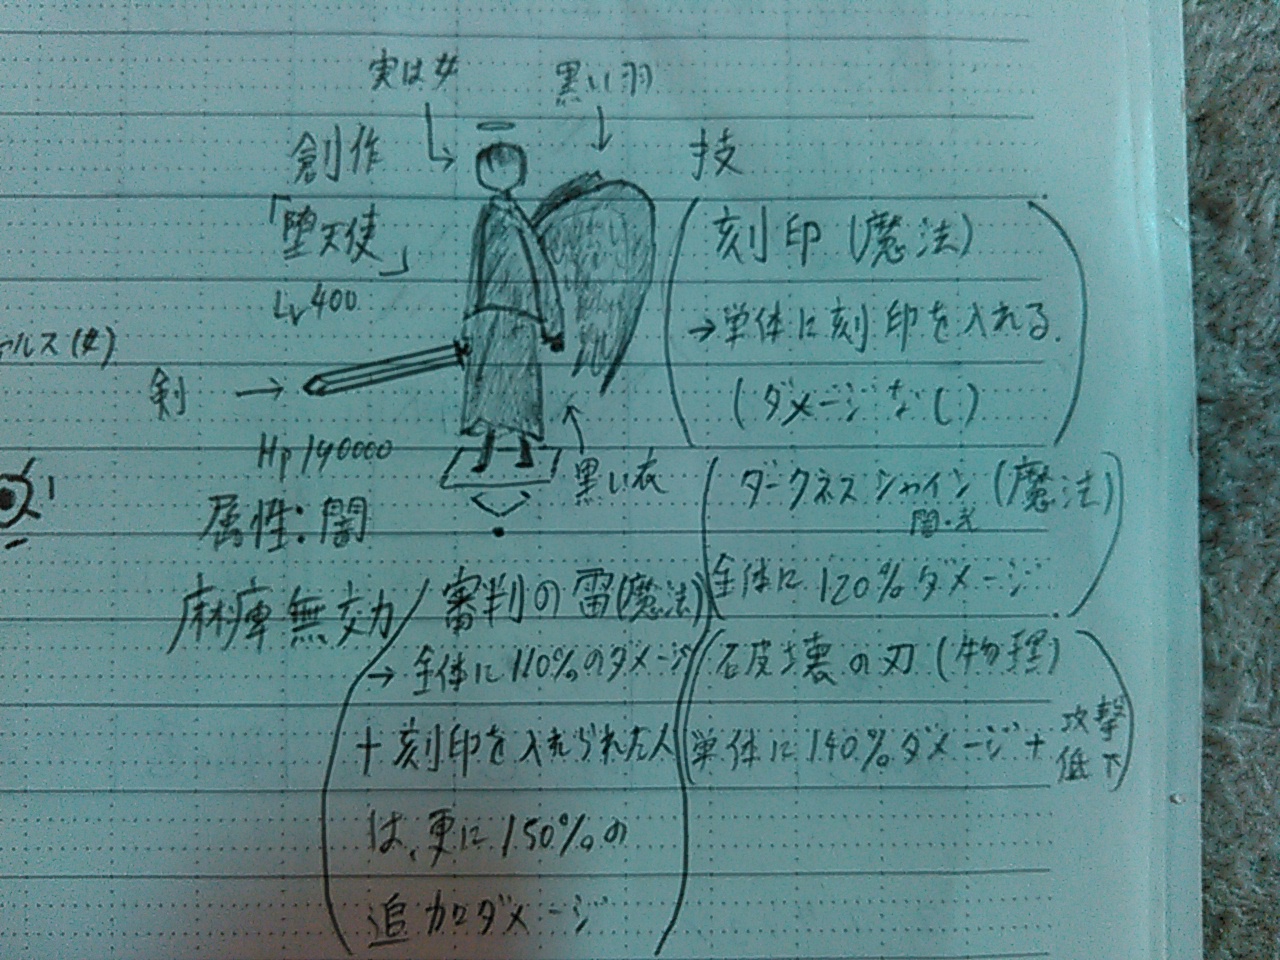 実は女
黒い羽
創作
「堕天使」
Lv400
剣
Hp 140000
黒い衣
属性:闇
麻痺無効
技
刻印(魔法)
→単体に刻印を入れる.
(ダメージなし)
ダークネスシャイン(魔法)
闇・光
全体に120%ダメージ
破壊の刃(物理)
単体に140%ダメージ+攻撃低下
審判の雷(魔法)
→全体に110%のダメージ
+刻印を入れられた人
は、更に150%の
追加ダメージ
アルス(女)